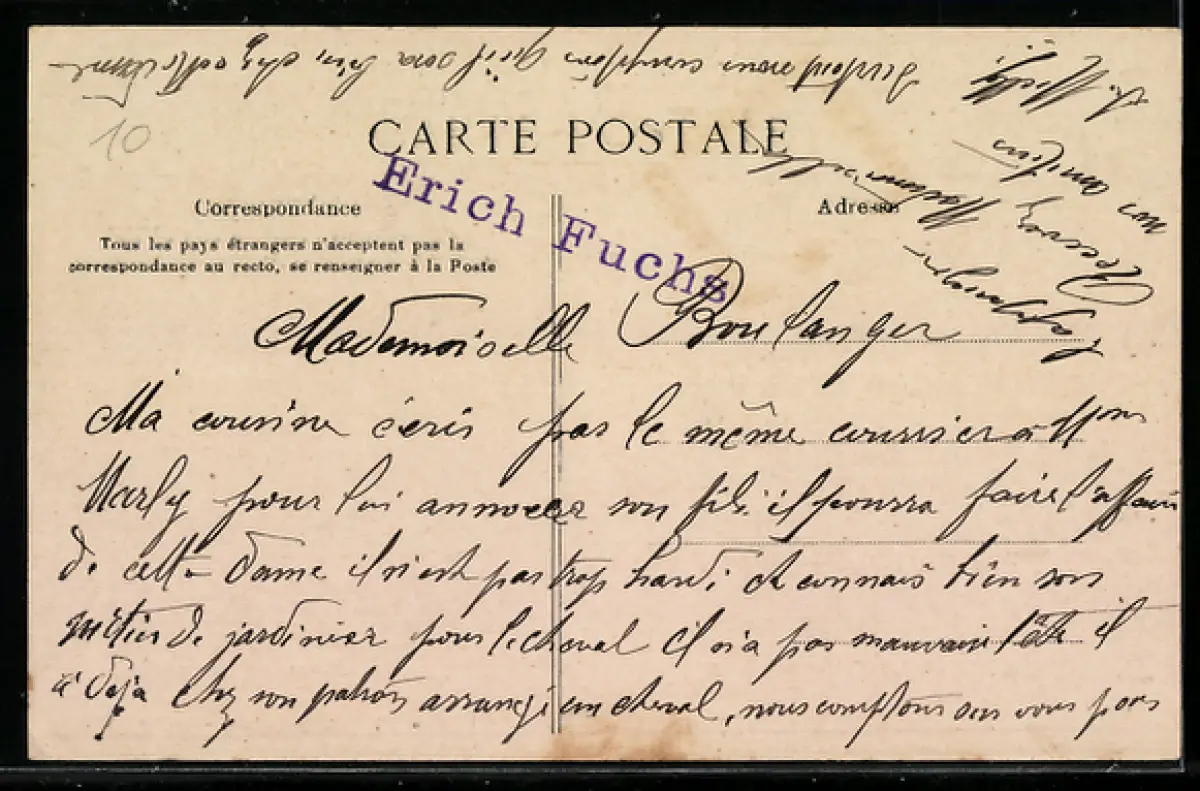 CARTE POSTALE
Erich Fuchs
10
Correspondance
Adresse
Tous les pays étrangers n'acceptent pas la
correspondance au recto, se renseigner à la Poste
Mademoiselle Boulanger
Ma cousine écris par le même courrier à Mons
Marly pour lui annoncer son fils. il pourra faire l'affaire
de cette Dame il n'est pas trop hardi et connais bien son
métier de jardinier pour le cheval il n'a pas mauvaise tête il
a déja chez son patron arrangé un cheval, nous comptons sur vous pour